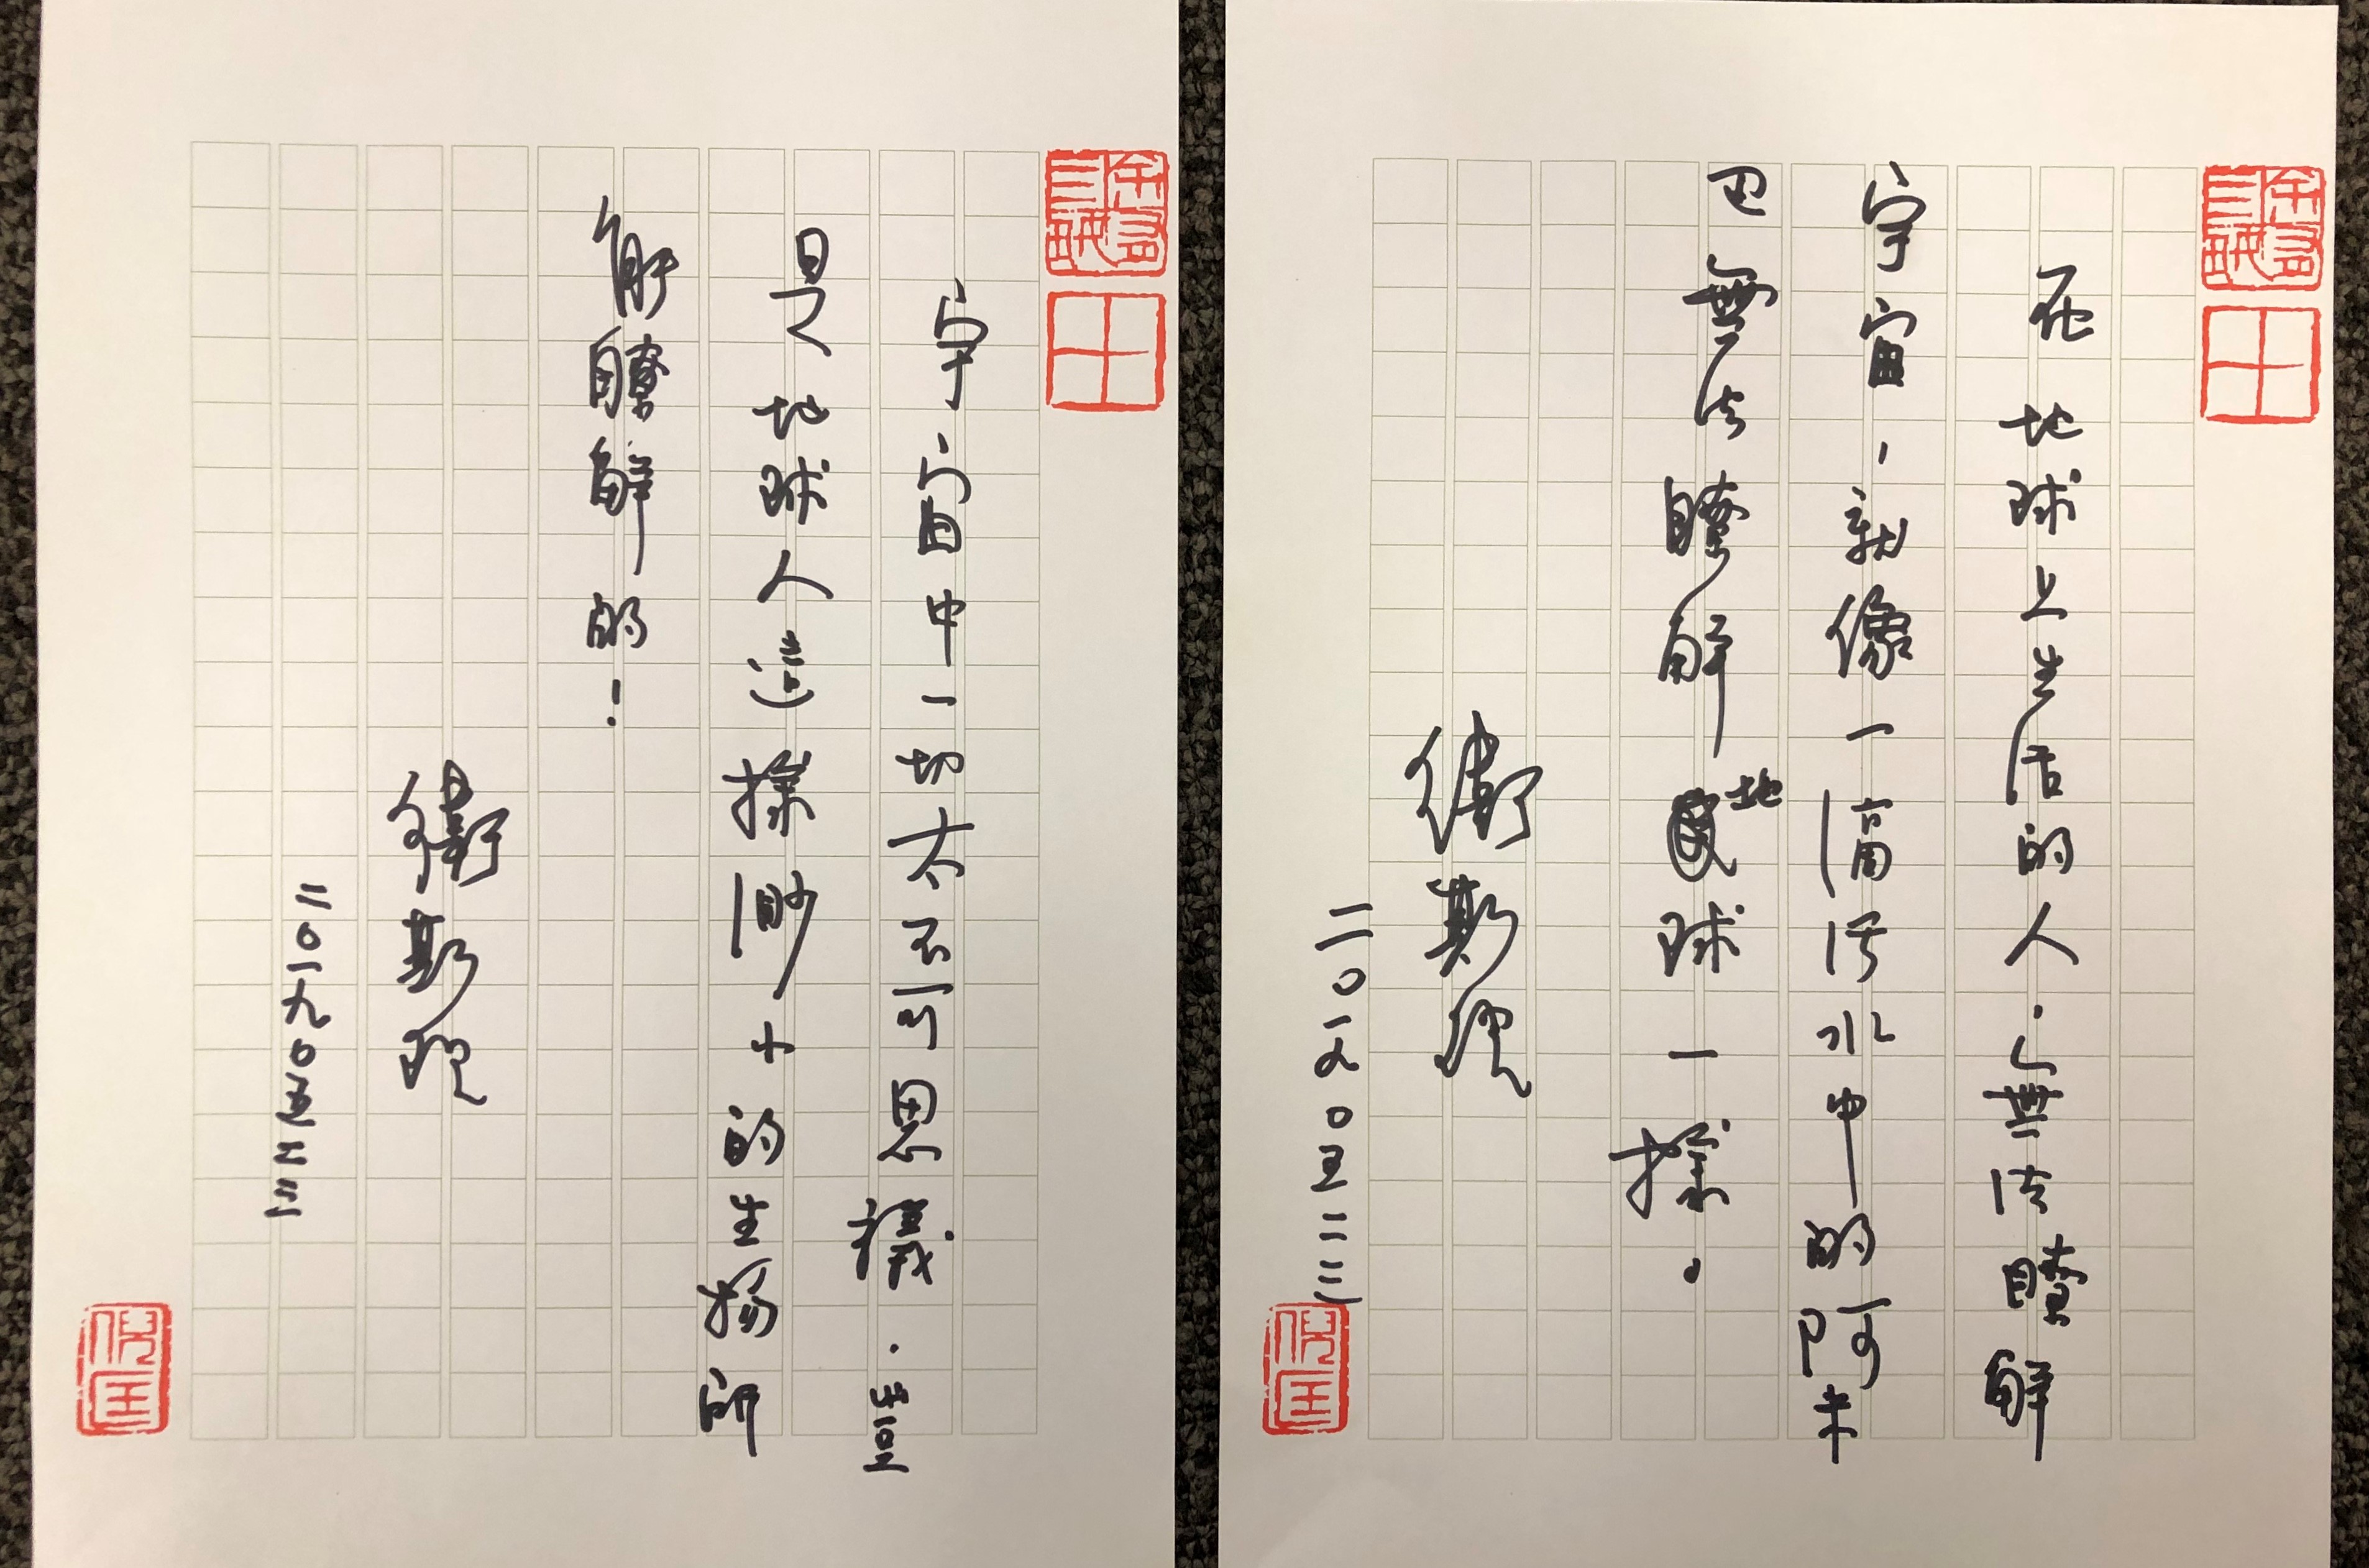 在地球上生活的人，無法瞭解
宇宙，就像一滴污水中的阿米
巴無法瞭解地球一樣。
衛斯理
二〇一九〇五二三
倪匡
宇宙中一切太不可思議，豈
是地球人這樣渺小的生物所
能瞭解的！
衛斯理
二〇一九〇四二三
倪匡